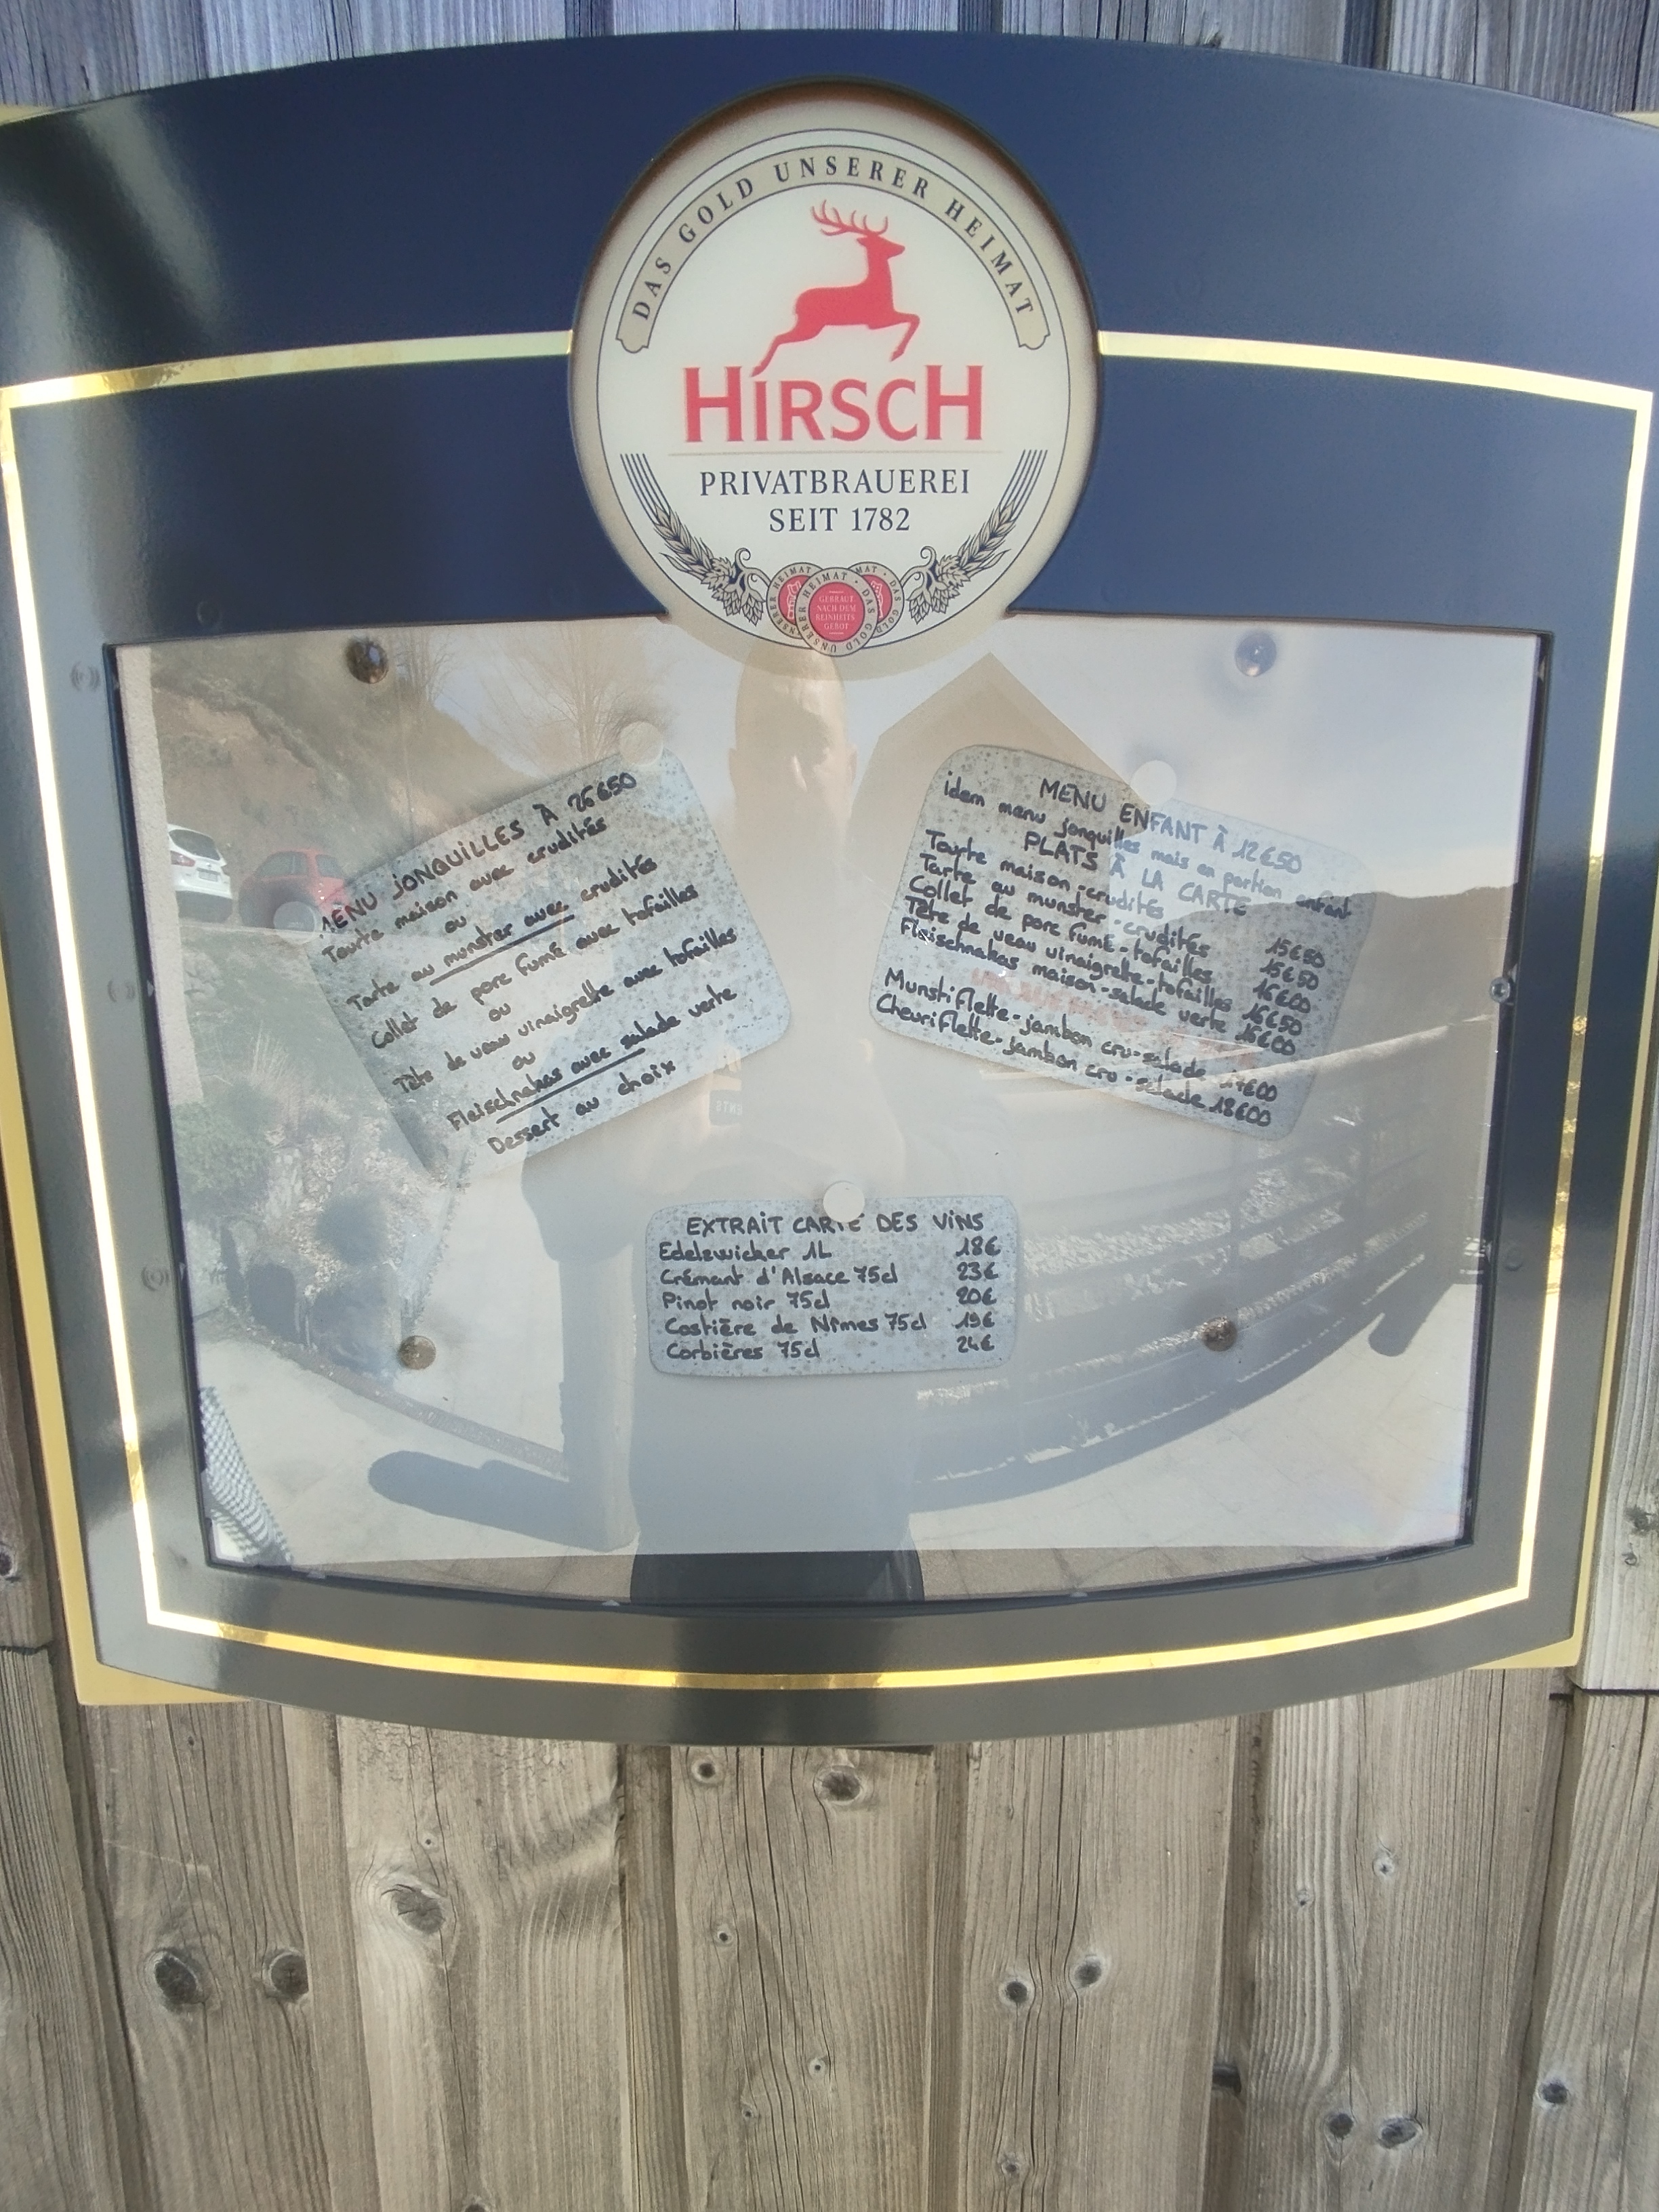 DAS GOLD UNSERER HEIMAT
HIRSCH
PRIVATBRAUEREI
SEIT 1782
GEBRAUT
NACH DEM
REINHEITS
GEBOT
MENU JONQUILLES À 26€50
Tourte maison avec crudités
ou
Tarte au munster avec crudités
Collet de porc fumé avec tofailles
ou
Tête de veau vinaigrette avec tofailles
ou
Fleischnakas avec salade verte
Dessert au choix
MENU ENFANT À 12€50
idem menu jonquilles mais en portion enfant
PLATS À LA CARTE
Tourte maison-crudités 15€50
Tarte au munster-crudités 15€50
Collet de porc fumé-tofailles 16€00
Tête de veau vinaigrette-tofailles 16€50
Fleischnakas maison-salade verte 16€00
Munstiflette-jambon cru-salade 17€00
Chevriflette-jambon cru-salade 18€00
EXTRAIT CARTE DES VINS
Edelswicker 1L 18€
Crémant d'Alsace 75cl 23€
Pinot noir 75cl 20€
Costière de Nîmes 75cl 19€
Corbières 75cl 24€